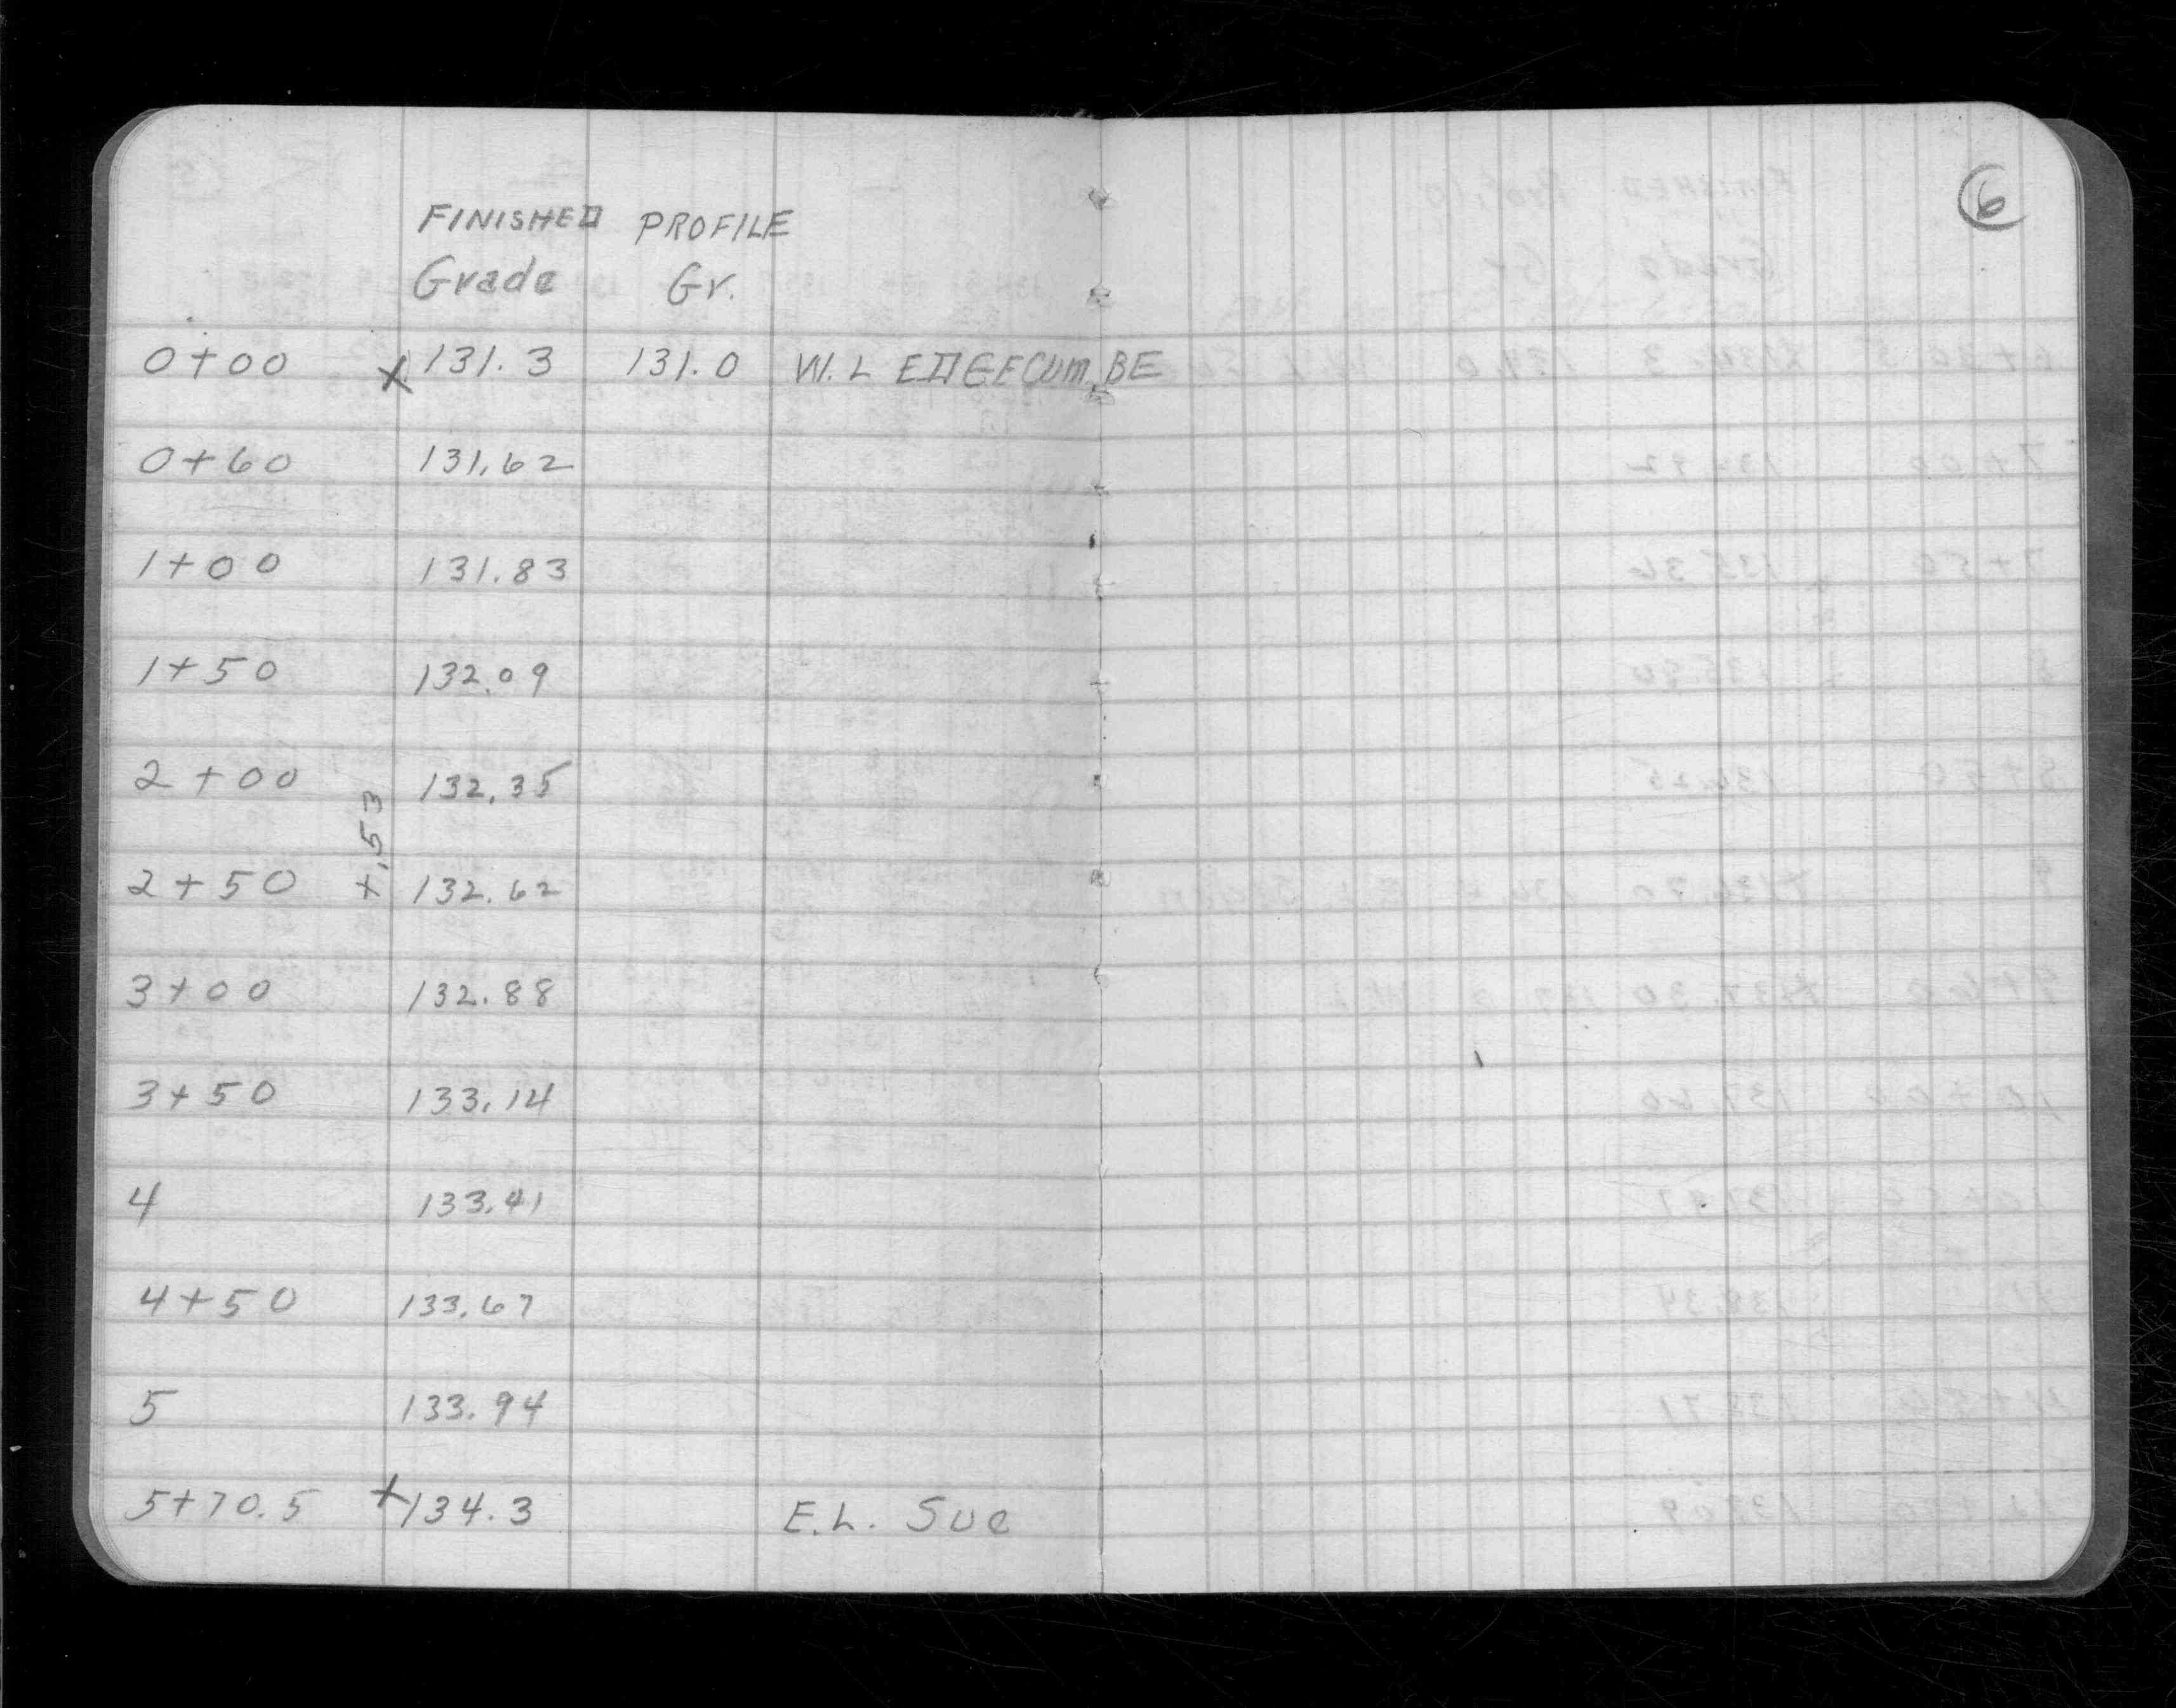 6
FINISHED PROFILE
Grade Gr.
0+00 x 131.3 131.0 W.L EDGECUMBE
0+60 131.62
1+00 131.83
1+50 132.09
2+00 132.35
+.53
2+50 132.62
3+00 132.88
3+50 133.14
4 133.41
4+50 133.67
5 133.94
5+70.5 +134.3 E.L. Sue